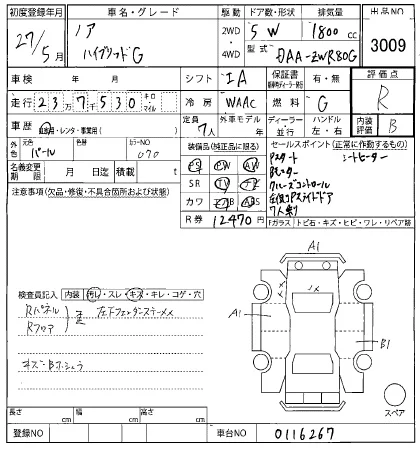 初度登録年月 車名・グレード 駆動 ドア数・形状 排気量 出品NO
27/5月 ノア ハイブリッドG 2WD・4WD 5 W 1800 cc 3009
型式 DAA-ZWR80G
車検 年 月 シフト IA 保証書 有・無 評価点
走行 23万7千530 キロ・マイル 冷房 WAAC 燃料 G R
車歴 自家用・レンタ・事業用( ) 定員 7人 外車モデル 年 ディーラー・並行 ハンドル 左・右 内装評価 B
外色 元色 パール カラーNO 070 装備品(純正品に限る) セールスポイント(正常に作動するもの)
名義変更期限 月 日 積載 t PS PW AW Pスタート シートヒーター
注意事項(欠品・修復・不具合箇所および状態) SR TV
クルーズコントロール
カワ ABS
7人乗り
R券 12470円 Fガラス トビ石・キズ・ヒビ・ワレ・リペア跡
A1
検査員記入 内装 汚れ・スレ・キズ・キレ・コゲ・穴
Rパネル
Rフロア
A1
B1
スペア
長さ cm 幅 cm 高さ cm
登録NO 車台NO 0116267